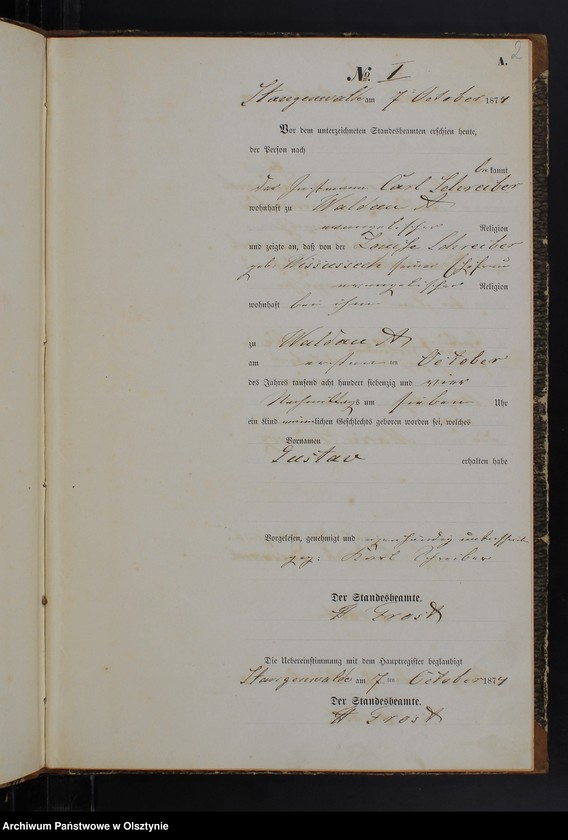 2
A.
No. I
Stangenwalde am 7 October 1874
Vor dem unterzeichneten Standesbeamten erschien heute,
der Person nach
bekannt
der Carl Schreiber
wohnhaft zu Waldau A
evangelischer Religion
und zeigte an, daß von der Louise Schreiber
geb. seiner Ehefrau
evangelischer Religion
wohnhaft bei ihm
zu Waldau A
am ersten ten October
des Jahres tausend acht hundert siebenzig und vier
Nachmittags um sieben Uhr
ein Kind männlichen Geschlechts geboren worden sei, welches
Vornamen
Gustav erhalten habe
Vorgelesen, genehmigt und eigenhändig unterschrieben
gez: Karl Schreiber
Der Standesbeamte.
A Frost
Die Uebereinstimmung mit dem Hauptregister beglaubigt
Stangenwalde am 7 ten October 1874
Der Standesbeamte.
A Frost
Archiwum Państwowe w Olsztynie